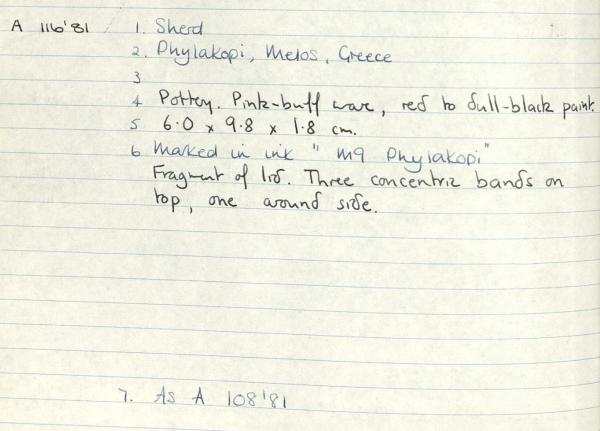 A 116'81 1. Sherd
2. Phylakopi, Melos, Greece
3
4 Pottery. Pink-buff ware, red to dull-black paint.
5 6.0 x 9.8 x 1.8 cm.
6 Marked in ink " M9 Phylakopi"
Fragment of lid. Three concentric bands on
top, one around side.
7. As A 108'81